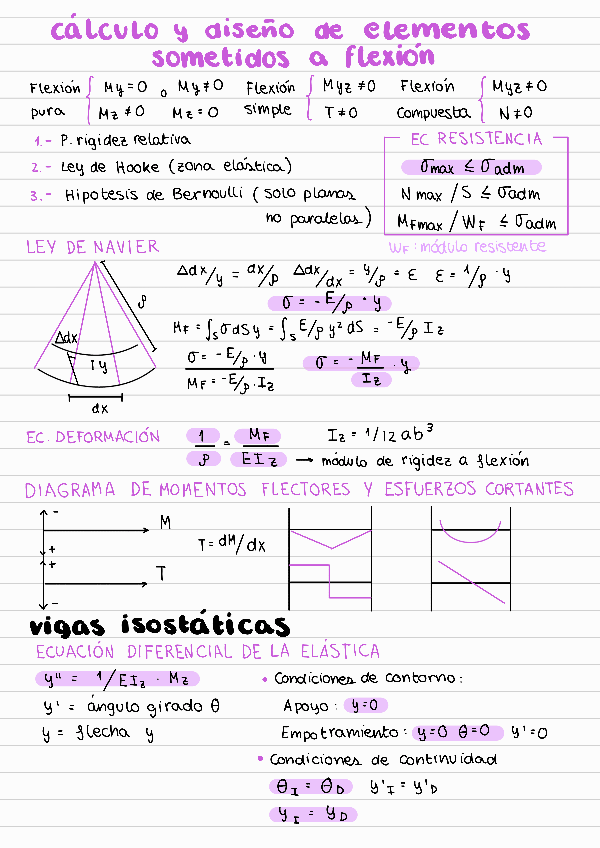 cálculo y diseño de elementos
sometidos a flexión
Flexión pura { My=0 Mz≠0 o My≠0 Mz=0
Flexión simple { Myz≠0 T≠0
Flexión compuesta { Myz≠0 N≠0
1.- P. rigidez relativa
2.- Ley de Hooke (zona elástica)
3.- Hipotesis de Bernoulli (solo planas
no paralelas)
EC RESISTENCIA
σmax ≤ σadm
Nmax/S ≤ σadm
MFmax/WF ≤ σadm
WF: módulo resistente
LEY DE NAVIER
ρ
Δdx
y
dx
Δdx/y = dx/ρ Δdx/dx = y/ρ = ε ε = 1/ρ · y
σ = -E/ρ · y
MF = ∫s σdSy = ∫s E/ρ y² dS = -E/ρ Iz
σ = -E/ρ · y
MF = -E/ρ · Iz
σ = -MF/Iz · y
EC. DEFORMACIÓN
1/ρ = MF/EIz → módulo de rigidez a flexión
Iz = 1/12 ab³
DIAGRAMA DE MOMENTOS FLECTORES Y ESFUERZOS CORTANTES
- M
+
+ T
-
T = dM/dx
vigas isostáticas
ECUACIÓN DIFERENCIAL DE LA ELÁSTICA
y'' = 1/EIz · Mz
y' = ángulo girado θ
y = flecha y
• Condiciones de contorno:
Apoyo: y=0
Empotramiento: y=0 θ=0 y'=0
• Condiciones de continuidad
θI = θD y'I = y'D
yI = yD